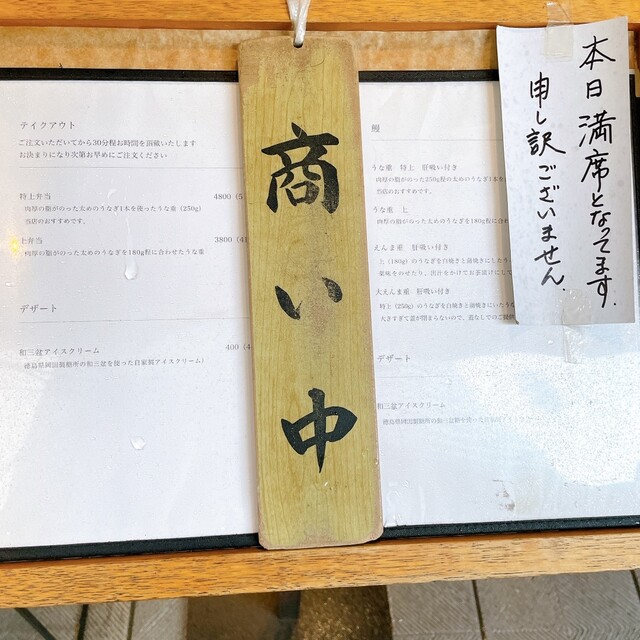 テイクアウト
ご注文いただいてから30分程お時間を頂戴いたします
お決まりになり次第お早めにご注文ください
特上弁当 4800
肉厚の脂がのった太めのうなぎ1本を使ったうな重 (250g)
当店のおすすめです。
上弁当 3800
肉厚の脂がのった太めのうなぎを180g程に合わせたうな重
デザート
和三盆アイスクリーム 400
徳島県岡田製糖所の和三盆を使った自家製アイスクリーム
商い中
鰻
うな重 特上 肝吸い付き
肉厚の脂がのった250g程の太めのうなぎ1本
当店のおすすめです。
うな重 上
肉厚の脂がのった太めのうなぎを180g程に合わ
えんま重 肝吸い付き
上 (180g) のうなぎを白焼きと蒲焼きにしたう
薬味をのせたり、出汁をかけてお茶漬けにして
大えんま重 肝吸い付き
特上 (250g) のうなぎを白焼きと蒲焼きにしたうな
大きすぎて蓋が閉まらないので、蓋なしでのご提供
デザート
和三盆アイスクリーム
徳島県岡田製糖所の和三盆糖を使った自家製
本日満席となってます.
申し訳ございません.